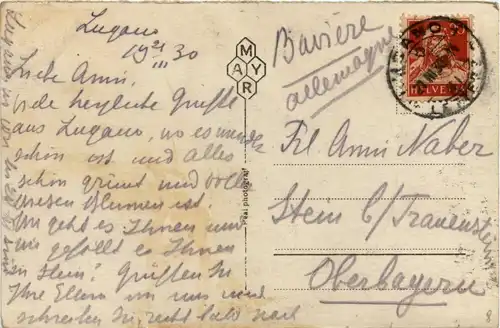 Lugano
19 21/III 30
Liebe Anni,
viele herzliche Grüße
aus Lugano, wo es wunder
schön ist und alles
schon grünt und voller
Wiesen Blumen ist.
Wie geht es Ihnen und
wie gefällt es Ihnen
in Stein? Grüßen Sie
Ihre Eltern von uns und
schreiben Sie recht bald
MAYR
Paul Photograf
Bavière
Allemagne
HELVETIA
Frl Anni Naber
Stein b/Traunstein
Oberbayern
8